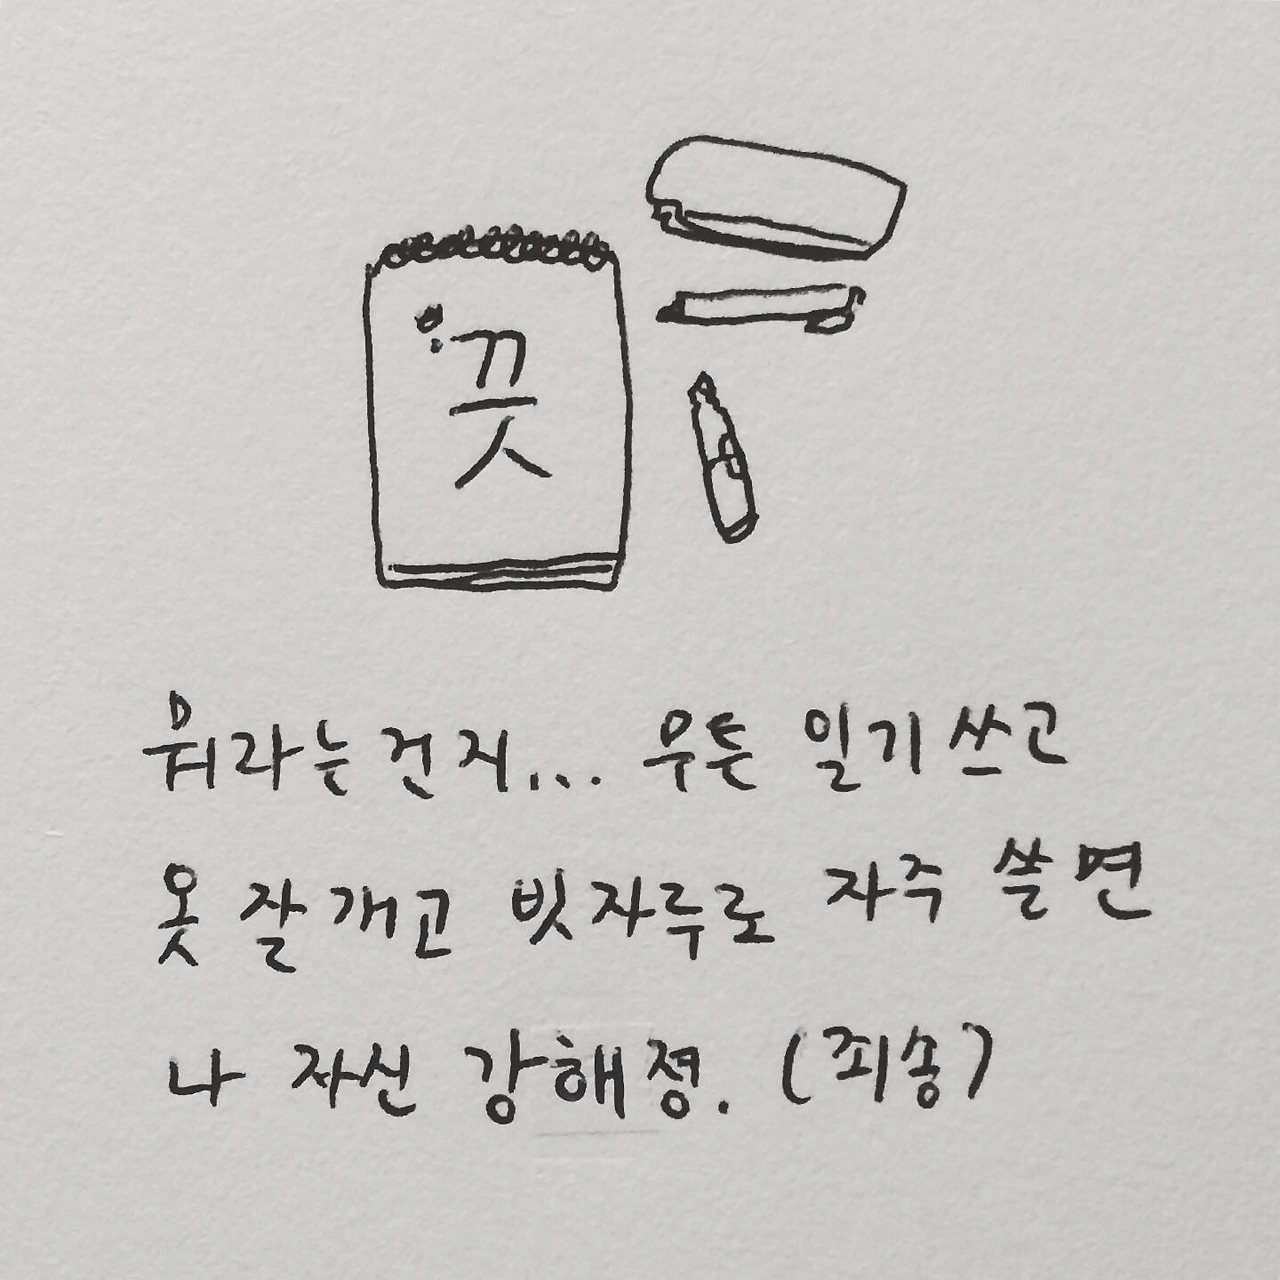 끗
뭐라는건지... 무튼 일기 쓰고
옷 잘 개고 빗자루로 자주 쓸면
나 자신 강해졍. (죄송)